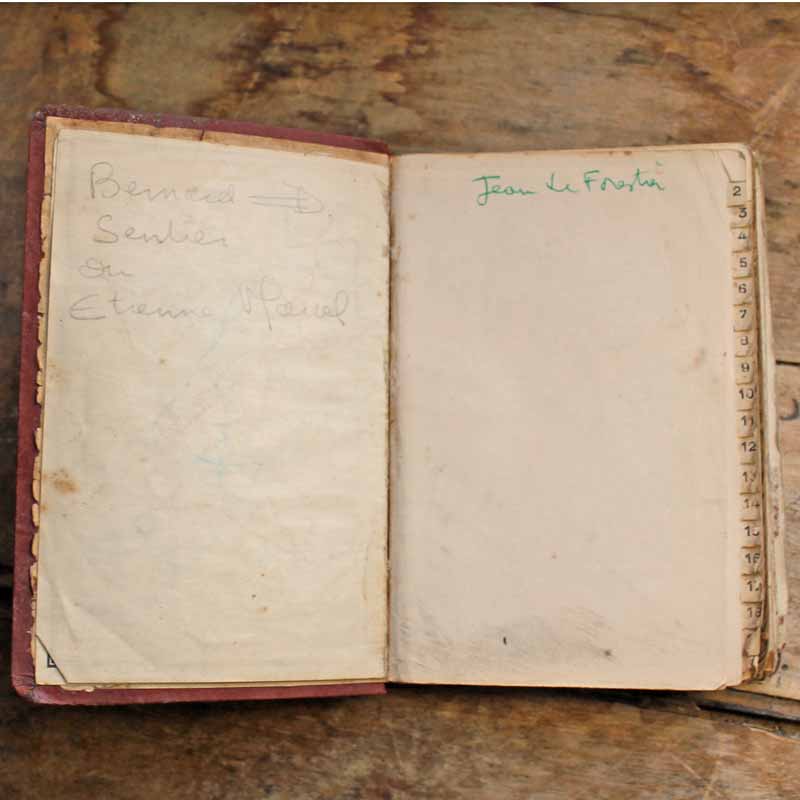 Bernard ⇒ D.
Sentier
ou
Etienne Marcel
Jean Le Forestier
2
3
4
5
6
7
8
9
10
11
12
13
14
15
16
17
18